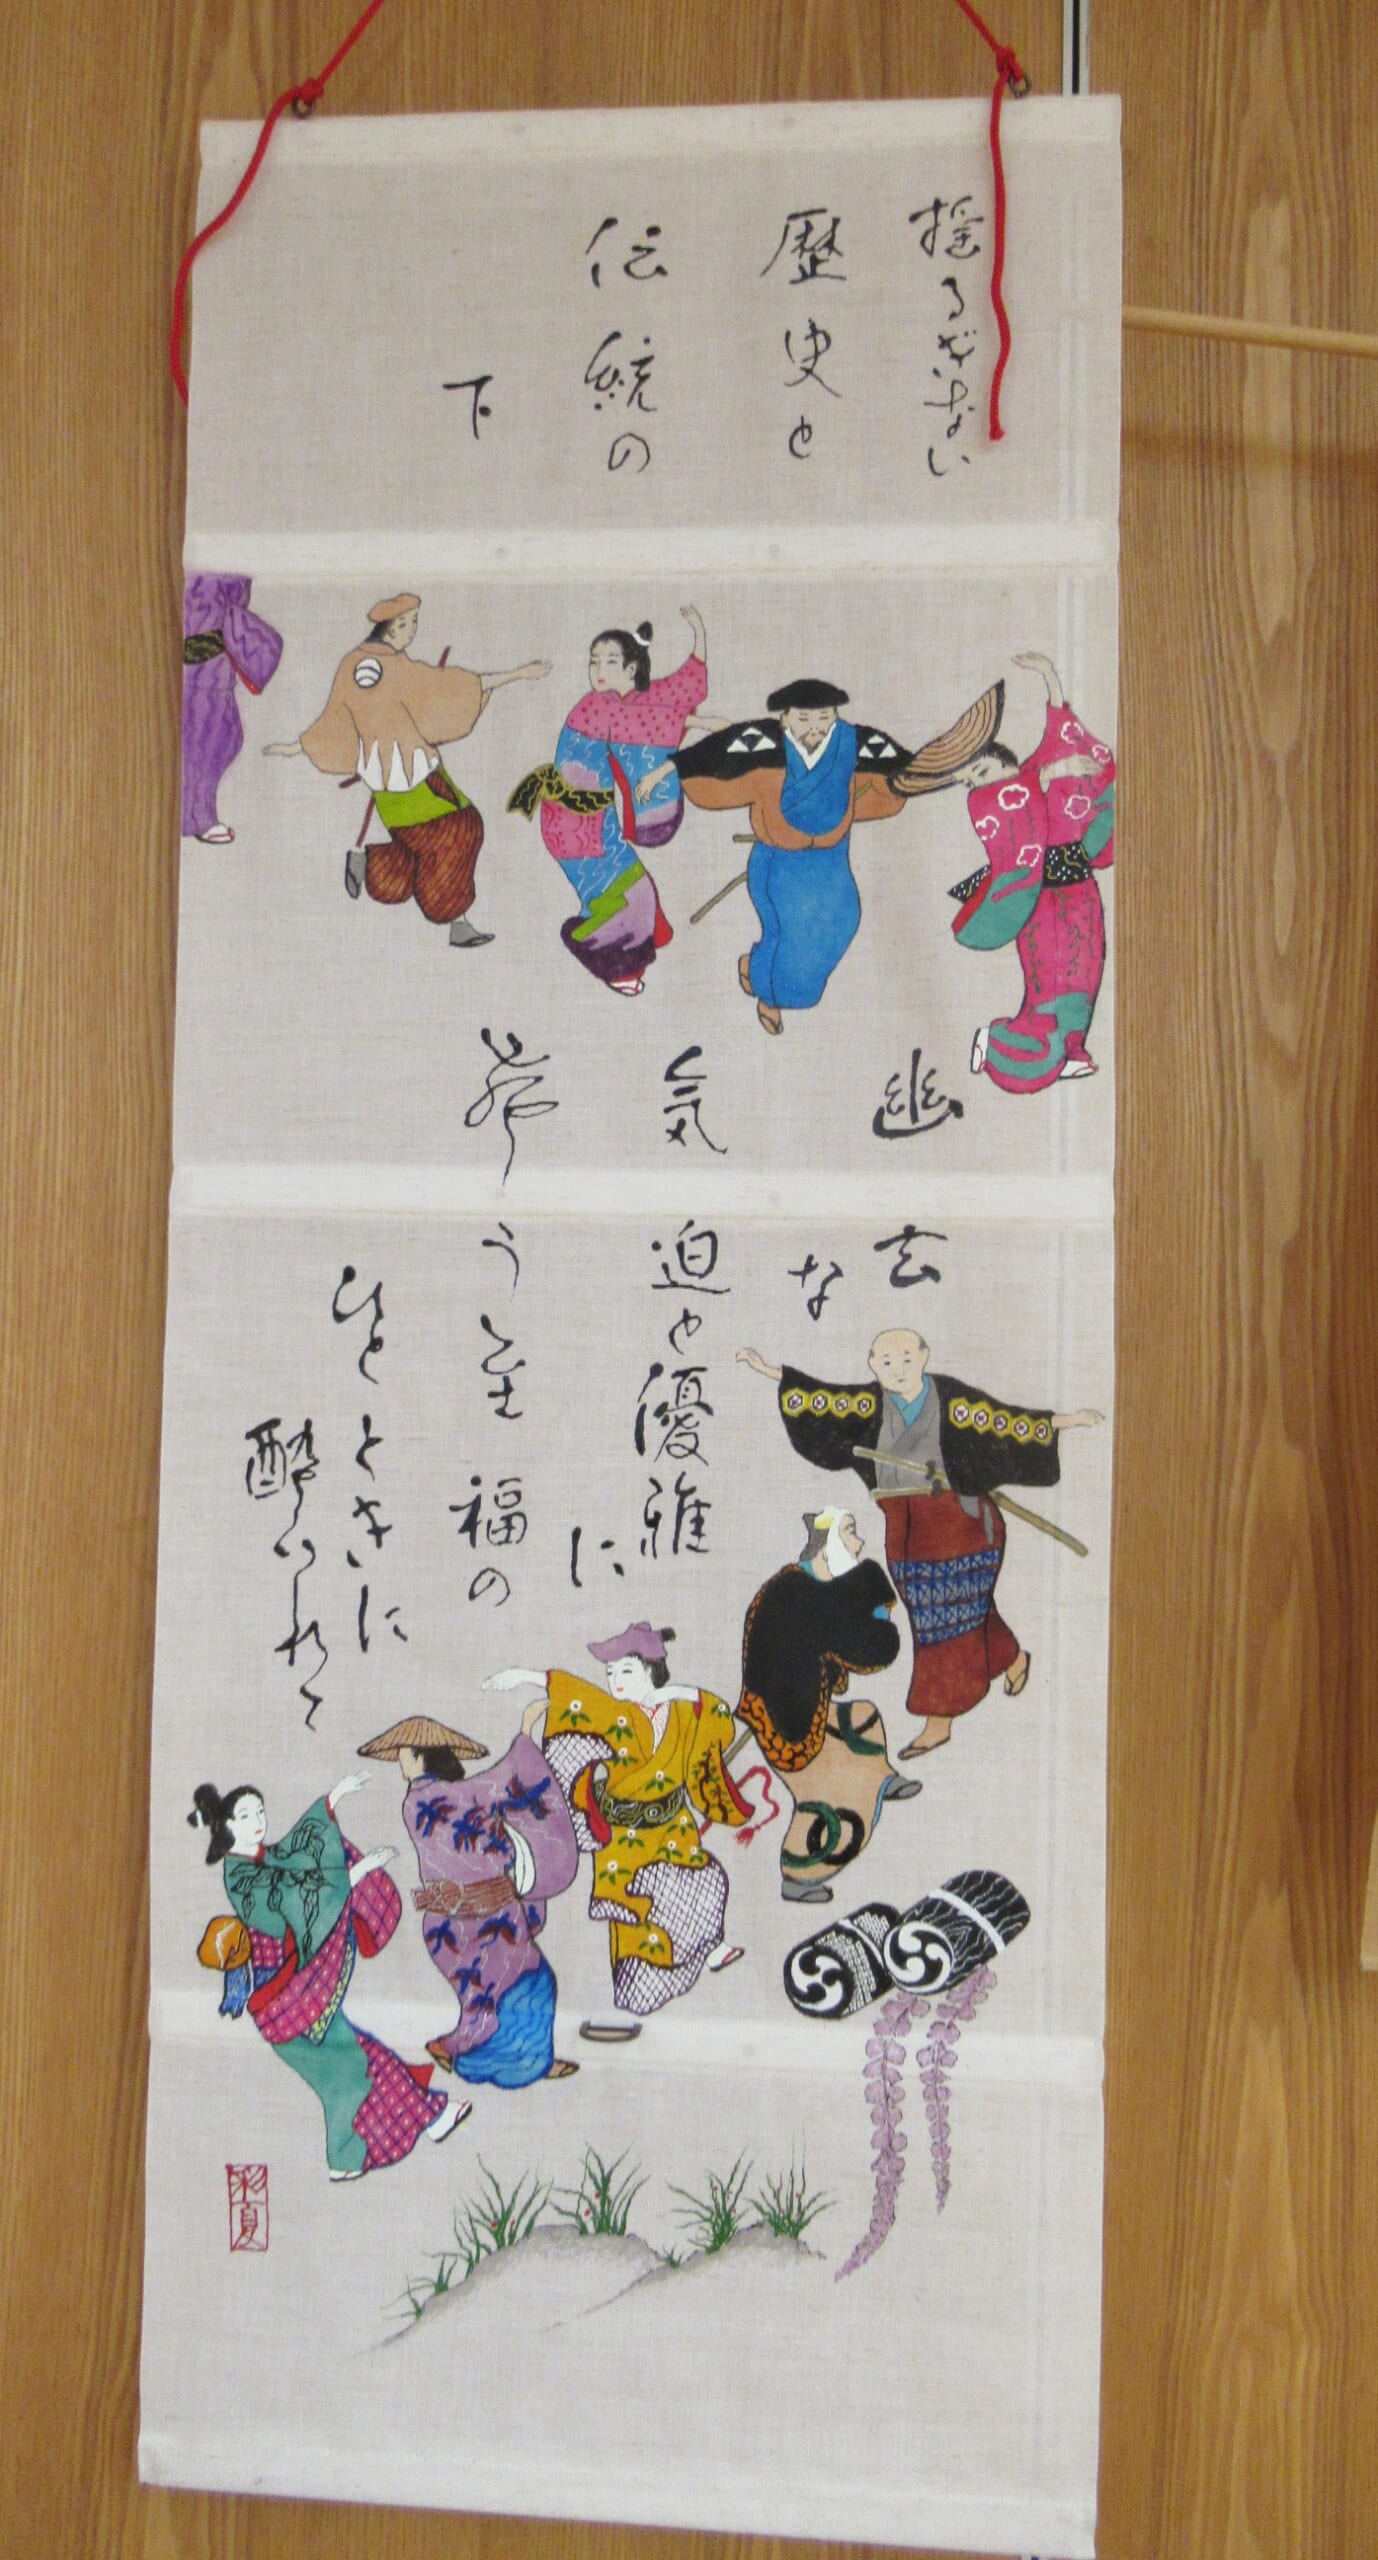 揺るぎない
歴史と
伝統の
下
幽玄
な
気迫と優雅
に
舞う至福の
ひとときに
酔いしれて
彩夏